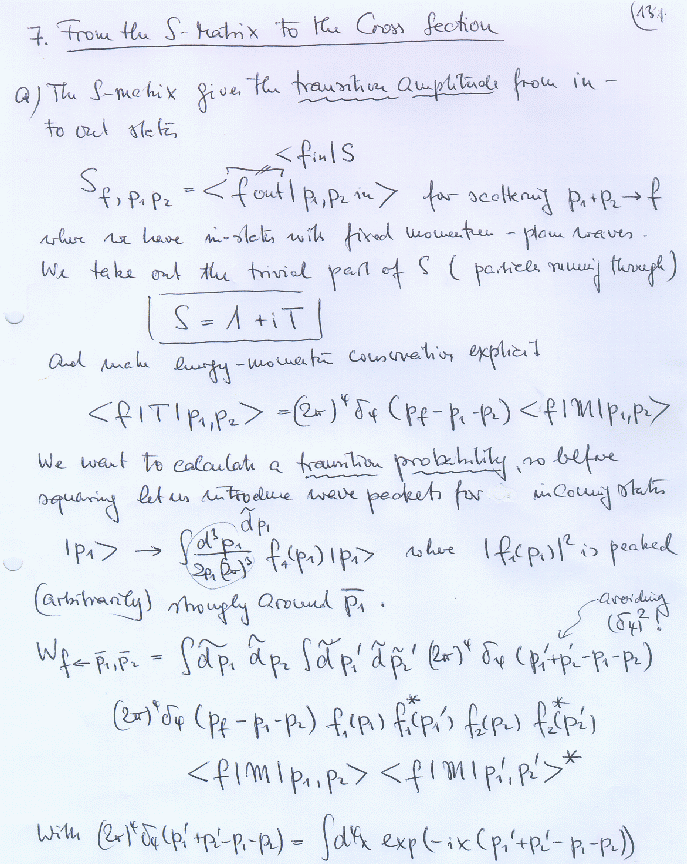 (131)
7. From the S-Matrix to the Cross Section
a) The S-matrix gives the transition amplitude from in-
to out states
<f in| S
S_{f,p₁p₂} = <f out| p₁,p₂ in> for scattering p₁+p₂ → f
where we have in-states with fixed momentum - plane waves.
We take out the trivial part of S (particles running through)
S = 1 + iT
and make energy-momentum conservation explicit
<f|T|p₁,p₂> = (2π)⁴ δ₄ (p_f - p₁ - p₂) <f|M|p₁,p₂>
We want to calculate a transition probability, so before
squaring let us introduce wave packets for incoming states
d̃p₁
|p₁> → ∫ d³p₁/2p₁(2π)³ f₁(p₁)|p₁> where |f₁(p₁)|² is peaked
(arbitrarily) strongly around p̄₁.
avoiding (δ₄)²!
W_{f←p̄₁,p̄₂} = ∫ d̃p₁ d̃p₂ ∫ d̃p₁' d̃p₂' (2π)⁴ δ₄ (p₁'+p₂'-p₁-p₂)
(2π)⁴ δ₄ (p_f - p₁ - p₂) f₁(p₁) f₁*(p₁') f₂(p₂) f₂*(p₂')
<f|M|p₁,p₂> <f|M|p₁',p₂'>*
With (2π)⁴ δ₄(p₁'+p₂'-p₁-p₂) = ∫d⁴x exp(-ix(p₁'+p₂'-p₁-p₂))